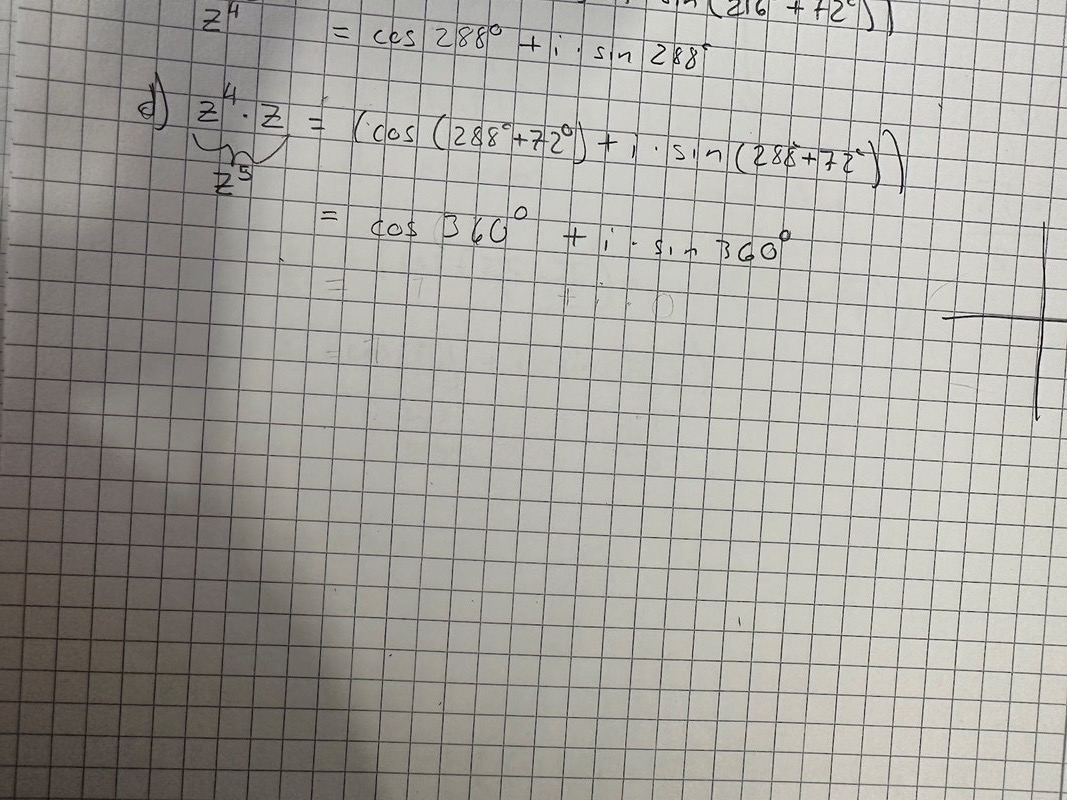 sin (216° + 72°))
z⁴ = cos 288° + i · sin 288°
d) z⁴ · z = (cos (288° + 72°) + i · sin (288° + 72°))
z⁵
= cos 360° + i · sin 360°
= 1 + i · 0
= 1